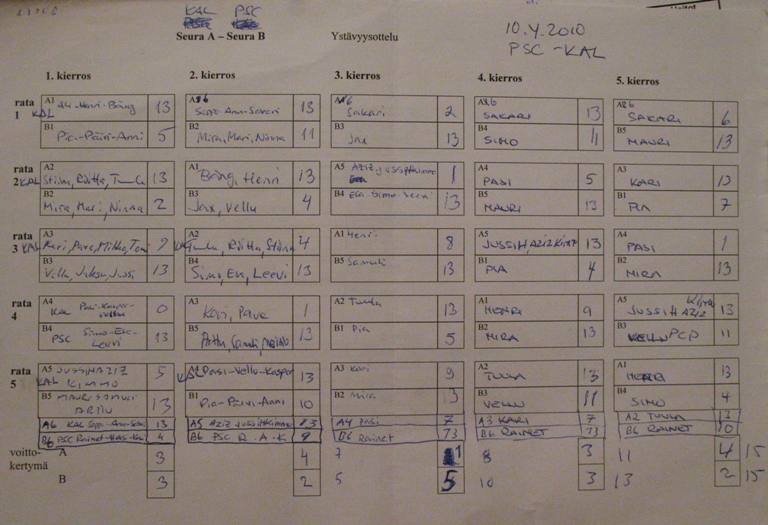 KAL PSC
Seura A – Seura B Ystävyysottelu
10.4.2010
PSC - KAL
1. kierros 2. kierros 3. kierros 4. kierros 5. kierros
rata 1
KAL A1 Henri-Bring 13
B1 Pia-Päivi-Anni 5
A6 Seppo-Anu-Sakari 13
B2 Mira, Mari, Ninna 11
A6 Sakari 2
B3 Jax 13
A6 SAKARI 13
B4 SIMO 11
A6 SAKARI 6
B5 MAURI 13
rata 2
KAL A2 Stina, Riitta, Tuula 13
B2 Mira, Mari, Ninna 2
A1 Bring, Henri 13
B3 Jax, Vellu 4
A5 AZIZ JUSSI 1
B4 Esa Simo Leevi 13
A4 PASI 5
B5 MAURI 13
A3 KARI 13
B1 PIA 7
rata 3
KAL A3 Kari, Pave, Mikko, Tomi 2
B3 Vellu, Jussi 13
KAL A2 Tuula, Riitta, Stina 4
B4 Simo, Esa, Leevi 13
A1 Henri 8
B5 Samuli 13
A5 JUSSI H, AZIZ KIMMO 13
B1 PIA 4
A4 PASI 1
B2 MIRA 13
rata 4
A4 KAL Pasi-Kasper-Vellu 0
B4 PSC Simo-Esa-Leevi 13
A3 Kari, Pave 1
B5 Arttu, Samuli 13
A2 Tuula 13
B1 Pia 5
A1 HENRI 9
B2 MIRA 13
A5 JUSSI H AZIZ Kimmo 13
B3 VELLU PCP 11
rata 5
A5 JUSSI H AZIZ 5
KAL KIMMO
B5 MAURI SAMULI ARTTU 13
KAL A4 Pasi-Vellu-Kasper 13
B1 Pia-Päivi-Anni 10
A3 Kari 9
B2 Mira 13
A2 TUULA 13
B3 VELLU 11
A1 HENRI 13
B4 SIMO 4
A6 KAL Seppo-Anu-Sakari 13
B6 PSC Rainet 4
A5 Aziz Jussi Kimmo 13
B6 PSC R-A-K 9
A4 Pasi 7
B6 Rainet 13
A3 KARI 7
B6 RAINET 13
A2 TUULA 13
B6 RAINET 10
voitto-
kertymä
A 3 4 7 1 8 3 11 4 15
B 3 2 5 5 10 3 13 2 15